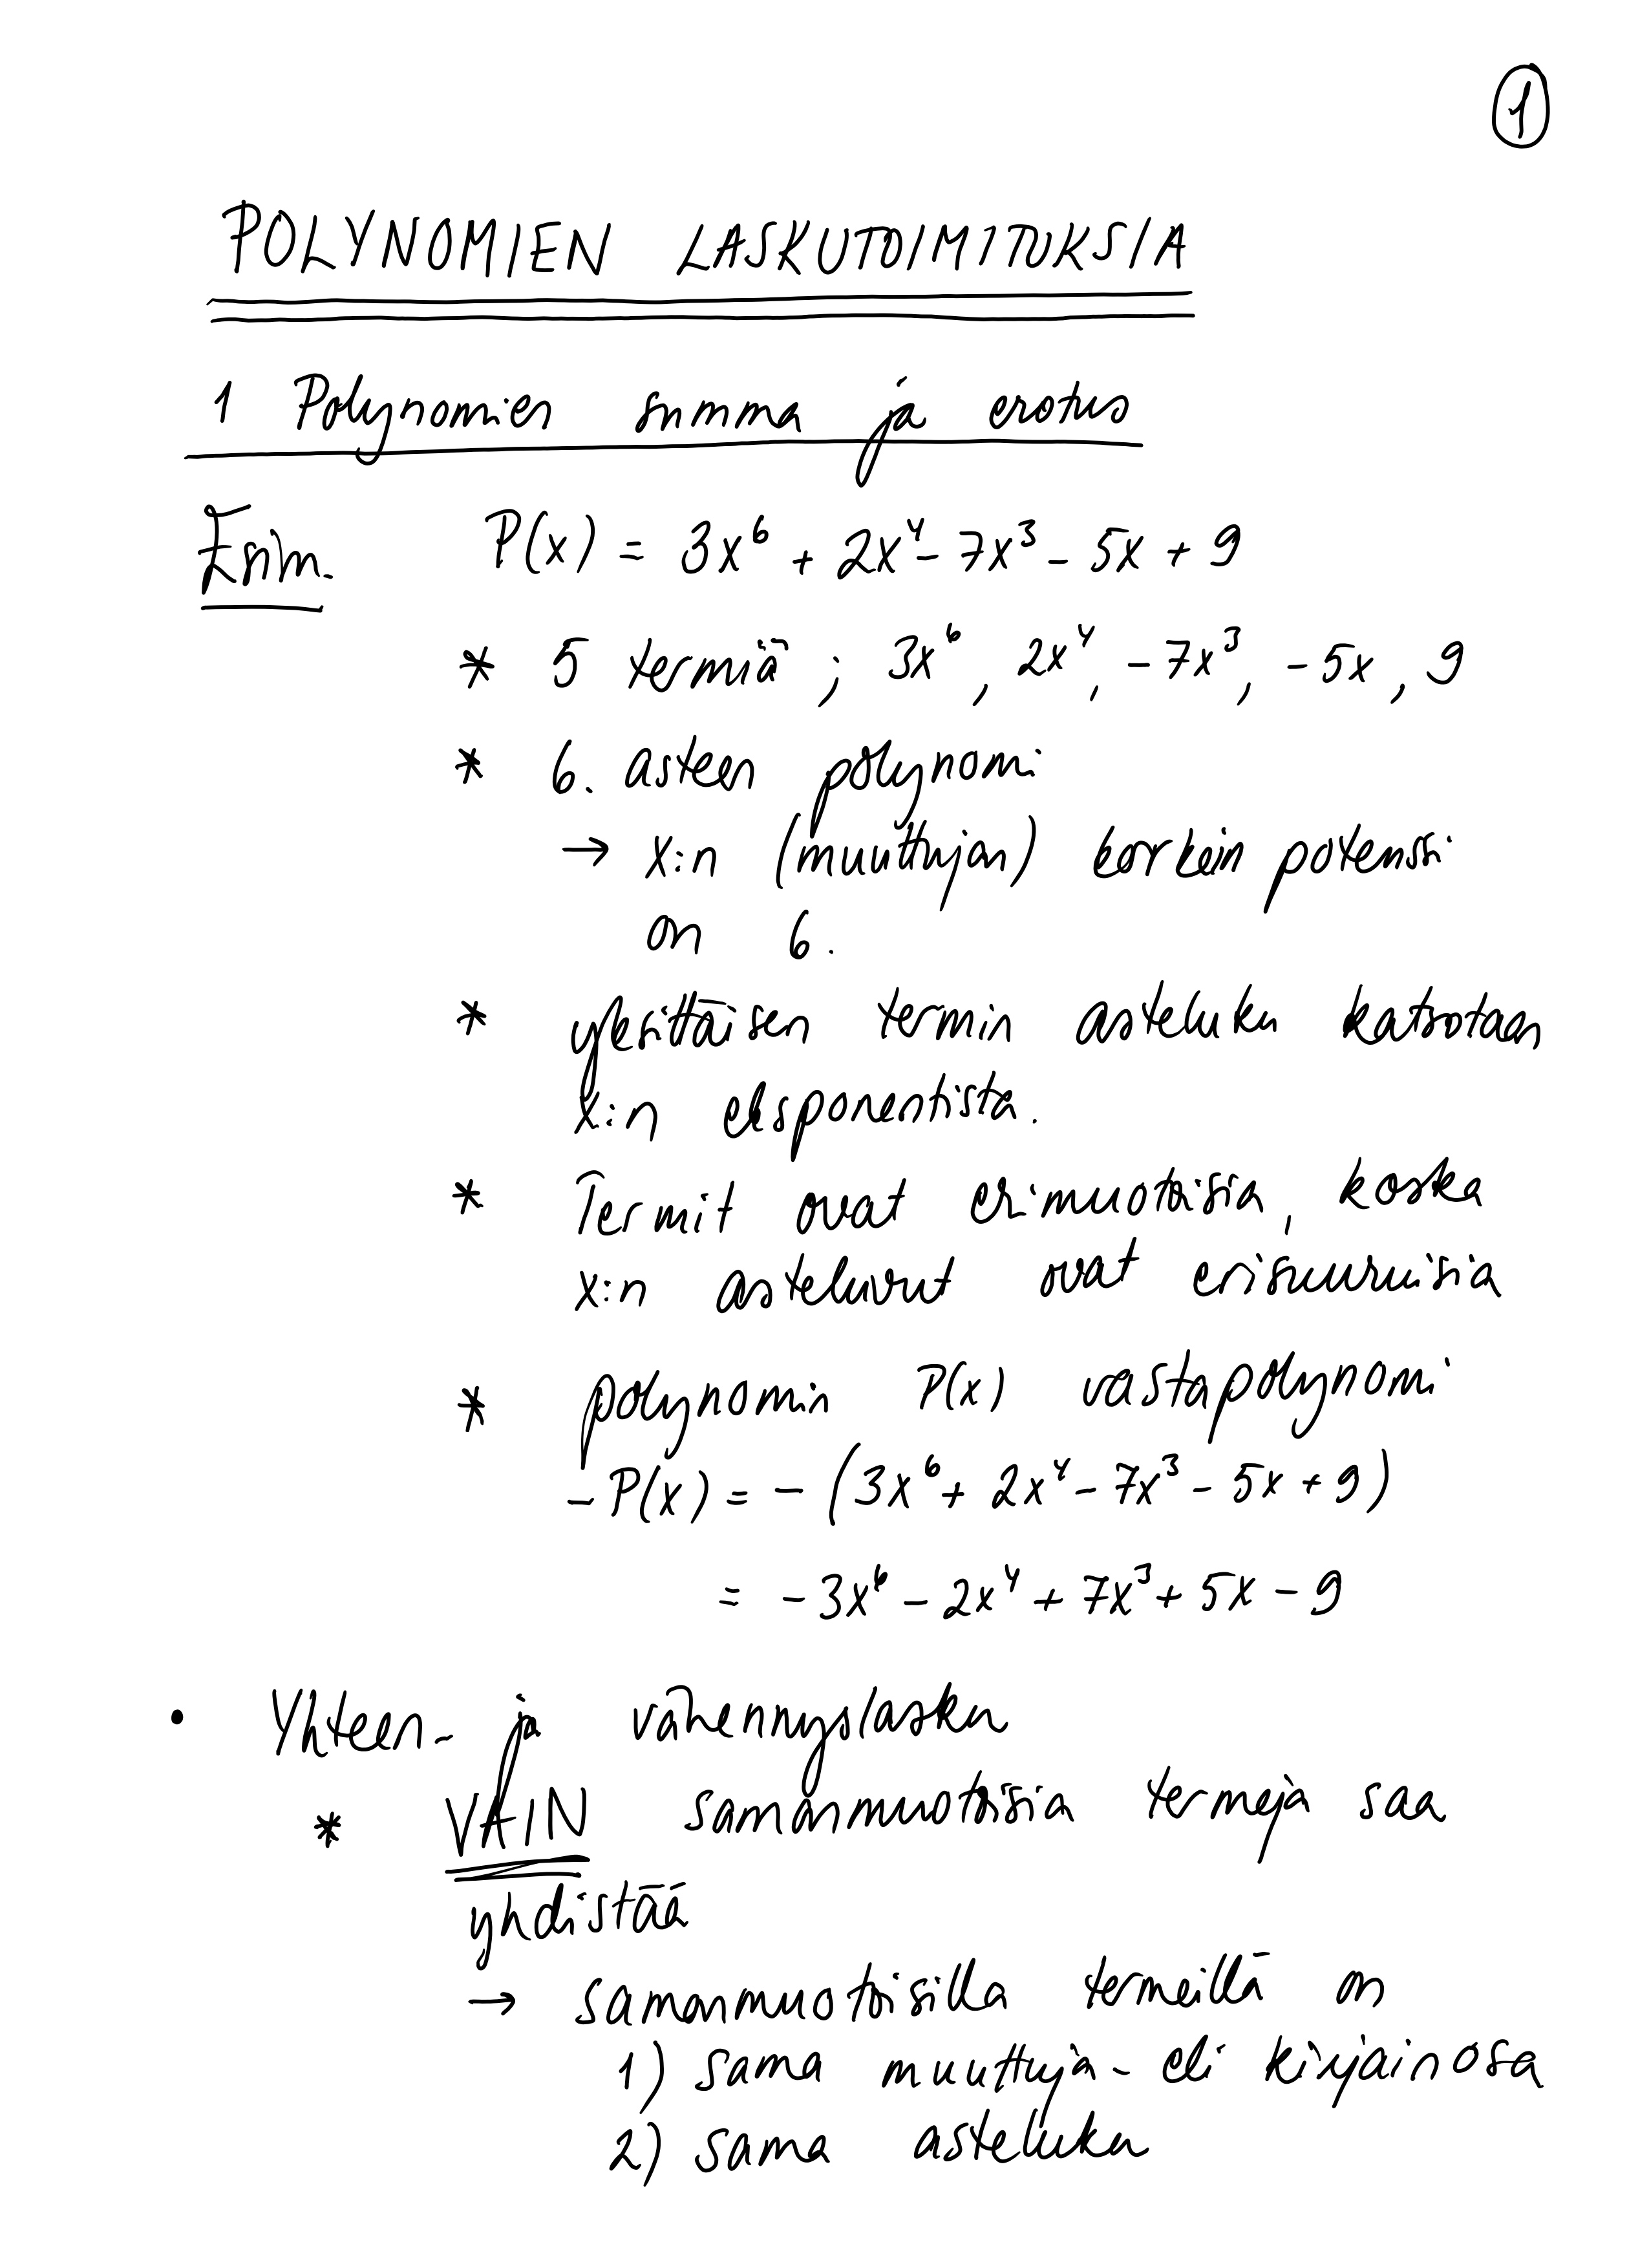 1
POLYNOMIEN LASKUTOIMITUKSIA
1 Polynomien summa ja erotus
Esim. P(x) = 3x⁶ + 2x⁴ - 7x³ - 5x + 9
* 5 termiä ; 3x⁶, 2x⁴, -7x³, -5x, 9
* 6. asteen polynomi
→ x:n (muuttujan) korkein potenssi
on 6.
* yksittäisen termin asteluku katsotaan
x:n eksponentista.
* Termit ovat erimuotoisia, koska
x:n asteluvut ovat erisuuruisia
* polynomin P(x) vastapolynomi
- P(x) = - (3x⁶ + 2x⁴ - 7x³ - 5x + 9)
= - 3x⁶ - 2x⁴ + 7x³ + 5x - 9
• Yhteen- ja vähennyslasku
* VAIN samanmuotoisia termejä saa
yhdistää
→ samanmuotoisilla termeillä on
1) sama muuttuja- eli kirjainosa
2) sama asteluku